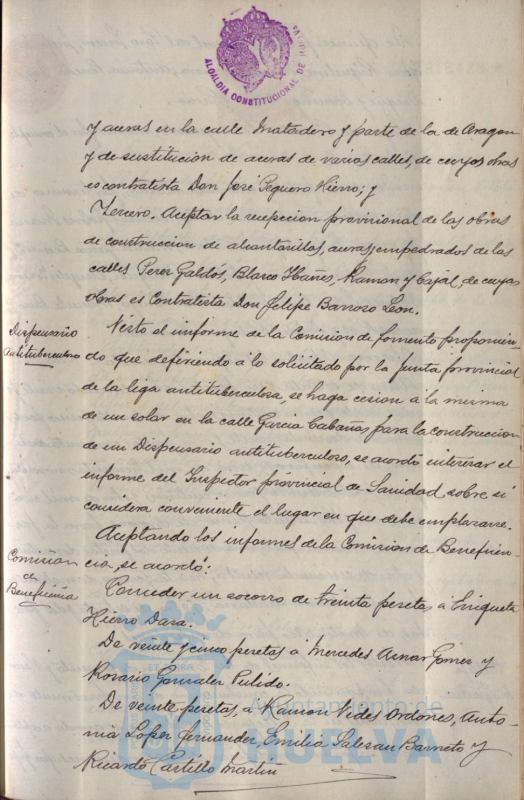 ALCALDIA CONSTITUCIONAL DE
y aceras en la calle Matadero y parte de la de Aragon
y de sustitucion de aceras de varias calles, de cuyas obras
es contratista Don José Peguero Hierro; y
Tercero. Aceptar la recepcion provisional de las obras
de construccion de alcantarillas, aceras y empedrados de las
calles Perez Galdós, Blasco Ibañes, Ramon y Cajal, de cuyas
obras es Contratista Don Felipe Barroso Leon.
Dispensario
antituberculoso
Visto el informe de la Comision de fomento proponien-
do que defiriendo á lo solicitado por la Junta provincial
de la liga antituberculosa, se haga cesion á la misma
de un solar en la calle Garcia Cabañas para la construccion
de un Dispensario antituberculoso, se acordó interesar el
informe del Inspector provincial de Sanidad sobre si
considera conveniente el lugar en que debe emplazarse.
Comision
de
Beneficencia
Aceptando los informes de la Comision de Beneficen-
cia, se acordó:
Conceder un socorro de treinta pesetas á Enriqueta
Hierro Dara.
De veinte y cinco pesetas á Mercedes Aznar Gomez y
Rosario Gonzalez Pulido.
De veinte pesetas, á Ramon Vides Ordones, Anto-
nia Lopez Fernandez, Emilia Barneto y
Ricardo Castillo Martin
Ayuntamiento de
HUELVA